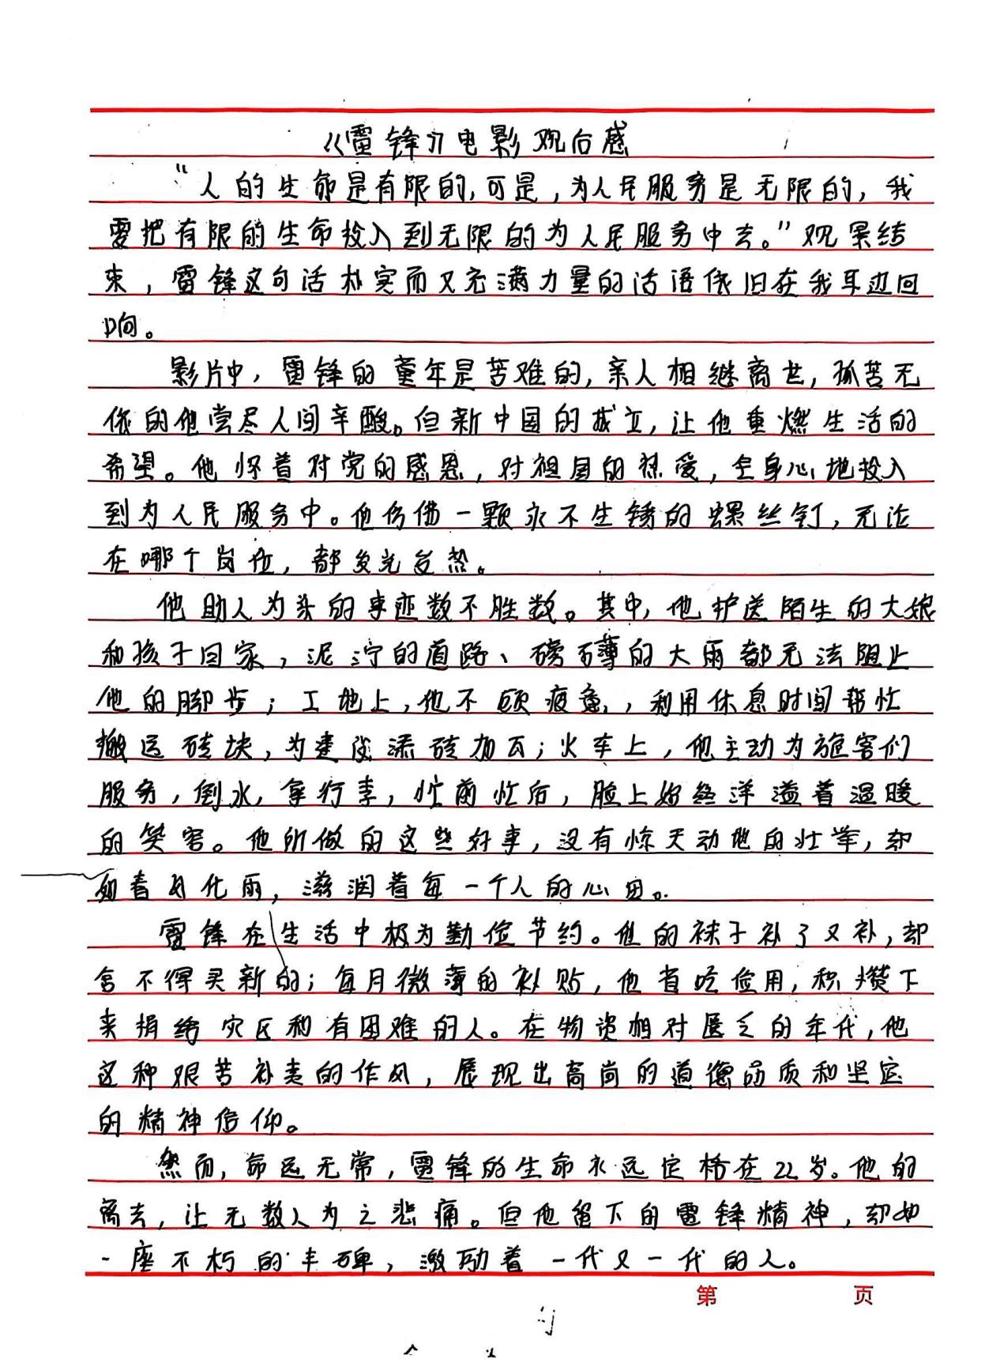 《雷锋》电影观后感
“人的生命是有限的,可是,为人民服务是无限的,我
要把有限的生命投入到无限的为人民服务中去。”观影结
束,雷锋这句话朴实而又充满力量的话语依旧在我耳边回
响。
影片中,雷锋的童年是苦难的,亲人相继离世,孤苦无
依的他尝尽人间辛酸。但新中国的成立,让他重燃生活的
希望。他怀着对党的感恩,对祖国的热爱,全身心地投入
到为人民服务中。他仿佛一颗永不生锈的螺丝钉,无论
在哪个岗位,都发光发热。
他助人为乐的事迹数不胜数。其中,他护送陌生的大娘
和孩子回家,泥泞的道路、磅礴的大雨都无法阻止
他的脚步;工地上,他不顾疲惫,利用休息时间帮忙
搬运砖块,为建设添砖加瓦;火车上,他主动为旅客们
服务,倒水,拿行李,忙前忙后,脸上始终洋溢着温暖
的笑容。他所做的这些好事,没有惊天动地的壮举,却
如春风化雨,滋润着每一个人的心田。
雷锋在生活中极为勤俭节约。他的袜子补了又补,却
舍不得买新的;每月微薄的补贴,他省吃俭用,积攒下
来捐给灾区和有困难的人。在物资相对匮乏的年代,他
这种艰苦朴素的作风,展现出高尚的道德品质和坚定
的精神信仰。
然而,命运无常,雷锋的生命永远定格在22岁。他的
离去,让无数人为之悲痛。但他留下的雷锋精神,却如
一座不朽的丰碑,激励着一代又一代的人。
第 页